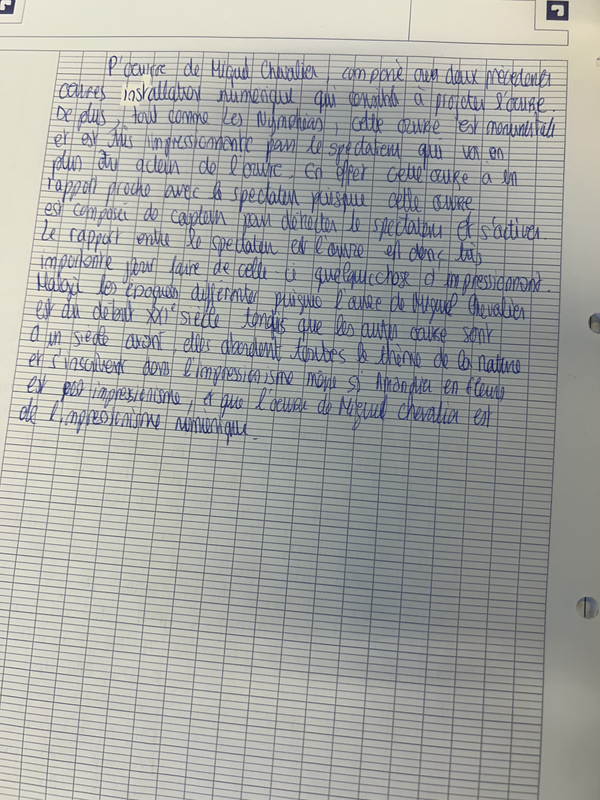 P'œuvre de Miguel Chevalier, comparé aux deux précédentes
œuvres installation numérique qui consiste à projeter l'œuvre.
De plus, tout comme Les Nymphéas, cette œuvre est monumentale
et est très impressionnante par le spectateur qui va en
plus être acteur de l'œuvre. En effet cette œuvre a un
rapport proche avec le spectateur puisque cette œuvre
est composée de capteurs pour détecter le spectateur et s'activer.
Le rapport entre le spectateur et l'œuvre est donc très
importante pour faire de celle-ci quelquechose d'impressionnant.
Malgré les époques différentes puisque l'œuvre de Miguel Chevalier
est du début XXIe siècle tandis que les autres œuvre sont
d'un siècle avant, elles abordent toutes le thème de la nature
et s'inscrivent dans l'impressionisme même si Amandier en fleurs
est post impressionisme, et que l'œuvre de Miguel Chevalier est
de l'impressionisme numérique.